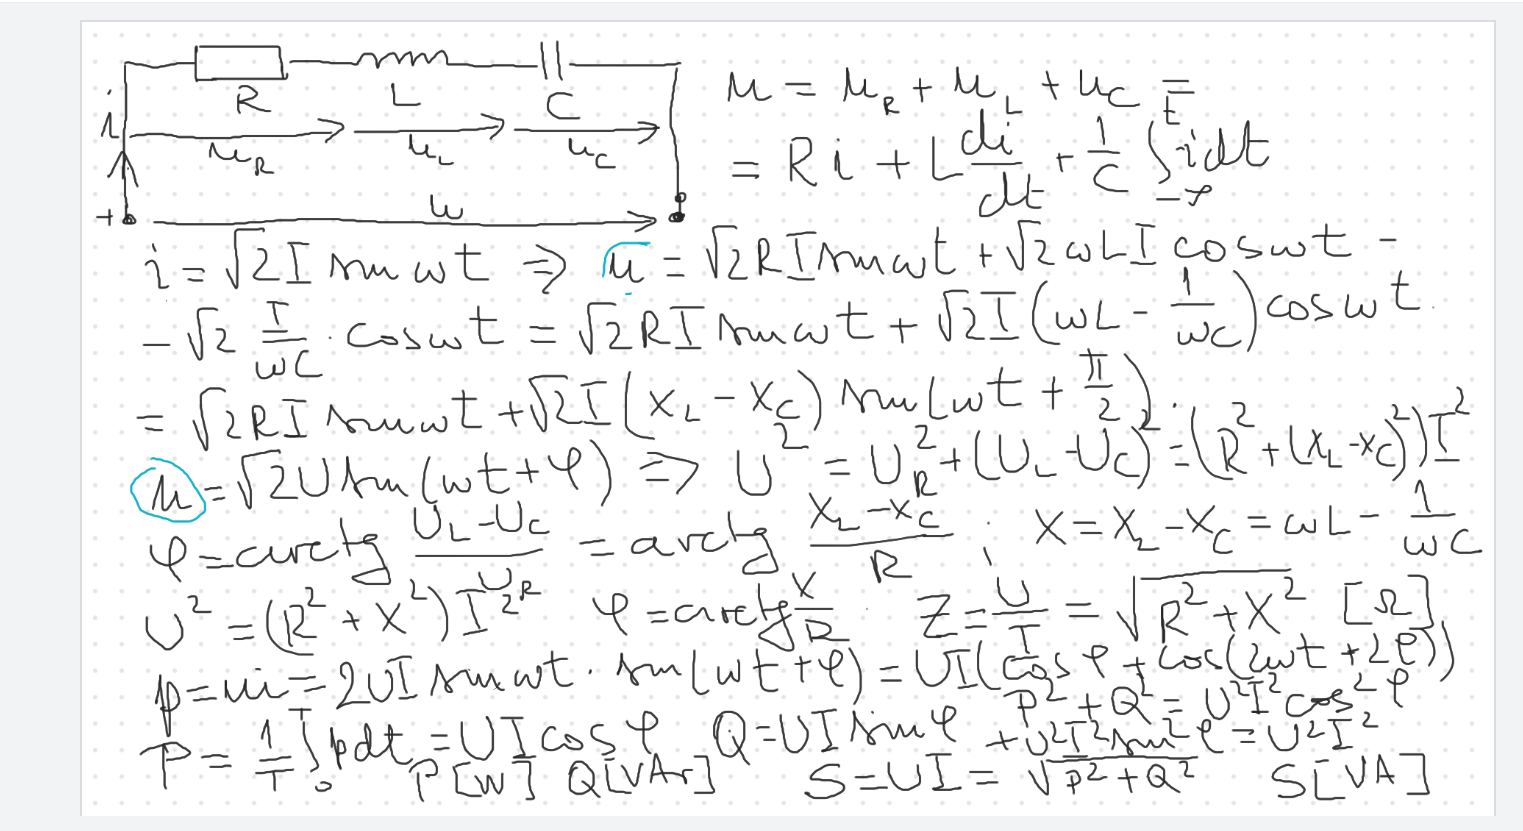 R L C
i u_R u_L u_C
+ u
u = u_R + u_L + u_C
= Ri + L di/dt + 1/C ∫_{-∞}^{t} i dt
i = √2 I sin ωt ⇒ u = √2 R I sin ωt + √2 ωL I cos ωt -
- √2 I/(ωC) · cos ωt = √2 R I sin ωt + √2 I (ωL - 1/(ωC)) cos ωt
= √2 R I sin ωt + √2 I (X_L - X_C) sin(ωt + π/2)
u = √2 U sin(ωt + φ) ⇒ U² = U_R² + (U_L - U_C)² = (R² + (X_L - X_C)²) I²
φ = arctg (U_L - U_C)/U_R = arctg (X_L - X_C)/R ; X = X_L - X_C = ωL - 1/(ωC)
U² = (R² + X²) I² φ = arctg X/R Z = U/I = √(R² + X²) [Ω]
p = ui = 2UI sin ωt · sin(ωt + φ) = UI(cos φ + cos(2ωt + 2φ))
P = 1/T ∫_0^T p dt = UI cos φ Q = UI sin φ P² + Q² = U²I² cos² φ
+ U²I² sin² φ = U²I²
P [W] Q [VAr] S = UI = √(P² + Q²) S [VA]